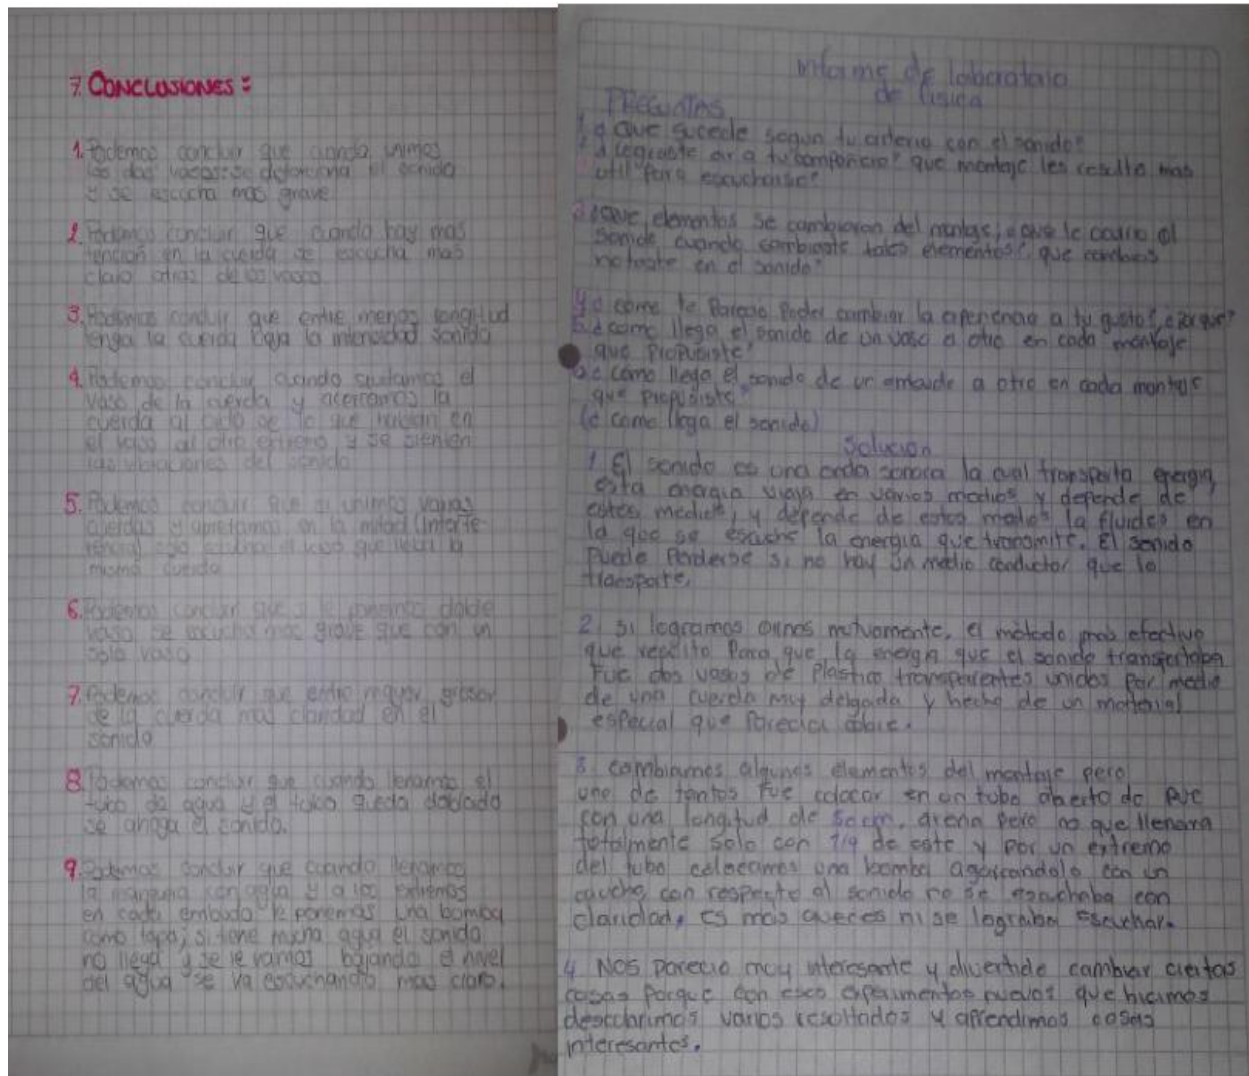 7. CONCLUSIONES:
1. Podemos concluir que cuando unimos
los dos vasos se detorciona el sonido
y se escucha mas grave
2. Podemos concluir que cuando hay mas
tencion en la cuerda se escucha mas
claro atraz de los vasos
3. Podemos concluir que entre menos longitud
tenga la cuerda baja la intensidad sonido
4. Podemos concluir cuando soltamos el
vaso de la cuerda y acercamos la
cuerda al oido de lo que hablan en
el vaso al otro extremo y se sienten
las vibraciones del sonido
5. Podemos concluir que si unimos varias
cuerdas y apretamos en la mitad (interfe
rencia) que lleva la
misma cuerda
6. Podemos concluir que si le ponemos doble
vaso se escucha mas grave que con un
solo vaso
7. Podemos concluir que entre mayor grosor
de la cuerda mas claridad en el
sonido
8. Podemos concluir que cuando llenamos el
tubo de agua y el tubo queda doblado
se ahoga el sonido.
9. Podemos concluir que cuando llenamos
la manguera con agua y a los extremos
en cada embudo le ponemos una bomba
como tapa; si tiene mucha agua el sonido
no llega y se le vamos bajando el nivel
del agua se va escuchando mas claro.
informe de laboratorio
de fisica
PREGUNTAS
1. ¿Que sucede segun tu criterio con el sonido?
2. ¿Lograste oir a tu compañero? que montaje les resulto mas
util para escucharse?
3. ¿Que elementos se cambiaron del montaje, ¿que le ocurrio al
sonido cuando cambiaste tales elementos? que cambios
notaste en el sonido?
4. ¿como te Parecio Poder cambiar la experiencia a tu gusto? ¿Por que?
5. ¿como llega el sonido de un vaso a otro en cada montaje
que Propusiste?
¿como llega el sonido de un a otro en cada montaje
que propusiste?
(¿como llega el sonido)
Solucion
1. El sonido es una onda sonora la cual transporta energia,
esta energia viaja en varios medios y depende de
estos medios, y depende de estos medios la fluidez en
la que se escuche la energia que transmite. El sonido
Puede Perderse si no hay un medio conductor que lo
transporte.
2. Si logramos oirnos mutuamente. el método mas efectivo
que resulto Para que la energia que el sonido transportaba
Fue dos vasos de Plastico transparentes unidos por medio
de una cuerda muy delgada y hecha de un material
especial que Parecia cobre.
3. cambiamos algunos elementos del montaje pero
uno de tantos fue colocar en un tubo abierto de PVC
con una longitud de 50cm, arena pero no que llenara
totalmente solo con de este y por un extremo
del tubo colocamos una bomba agarrandolo con un
caucho con respecto al sonido no se escuchaba con
claridad, es mas aveces ni se lograba Escuchar.
4 Nos parecio muy interesante y divertido cambiar ciertas
cosas Porque con esos experimentos nuevos que hicimos
descubrimos varios resultados y aprendimos cosas
interesantes.